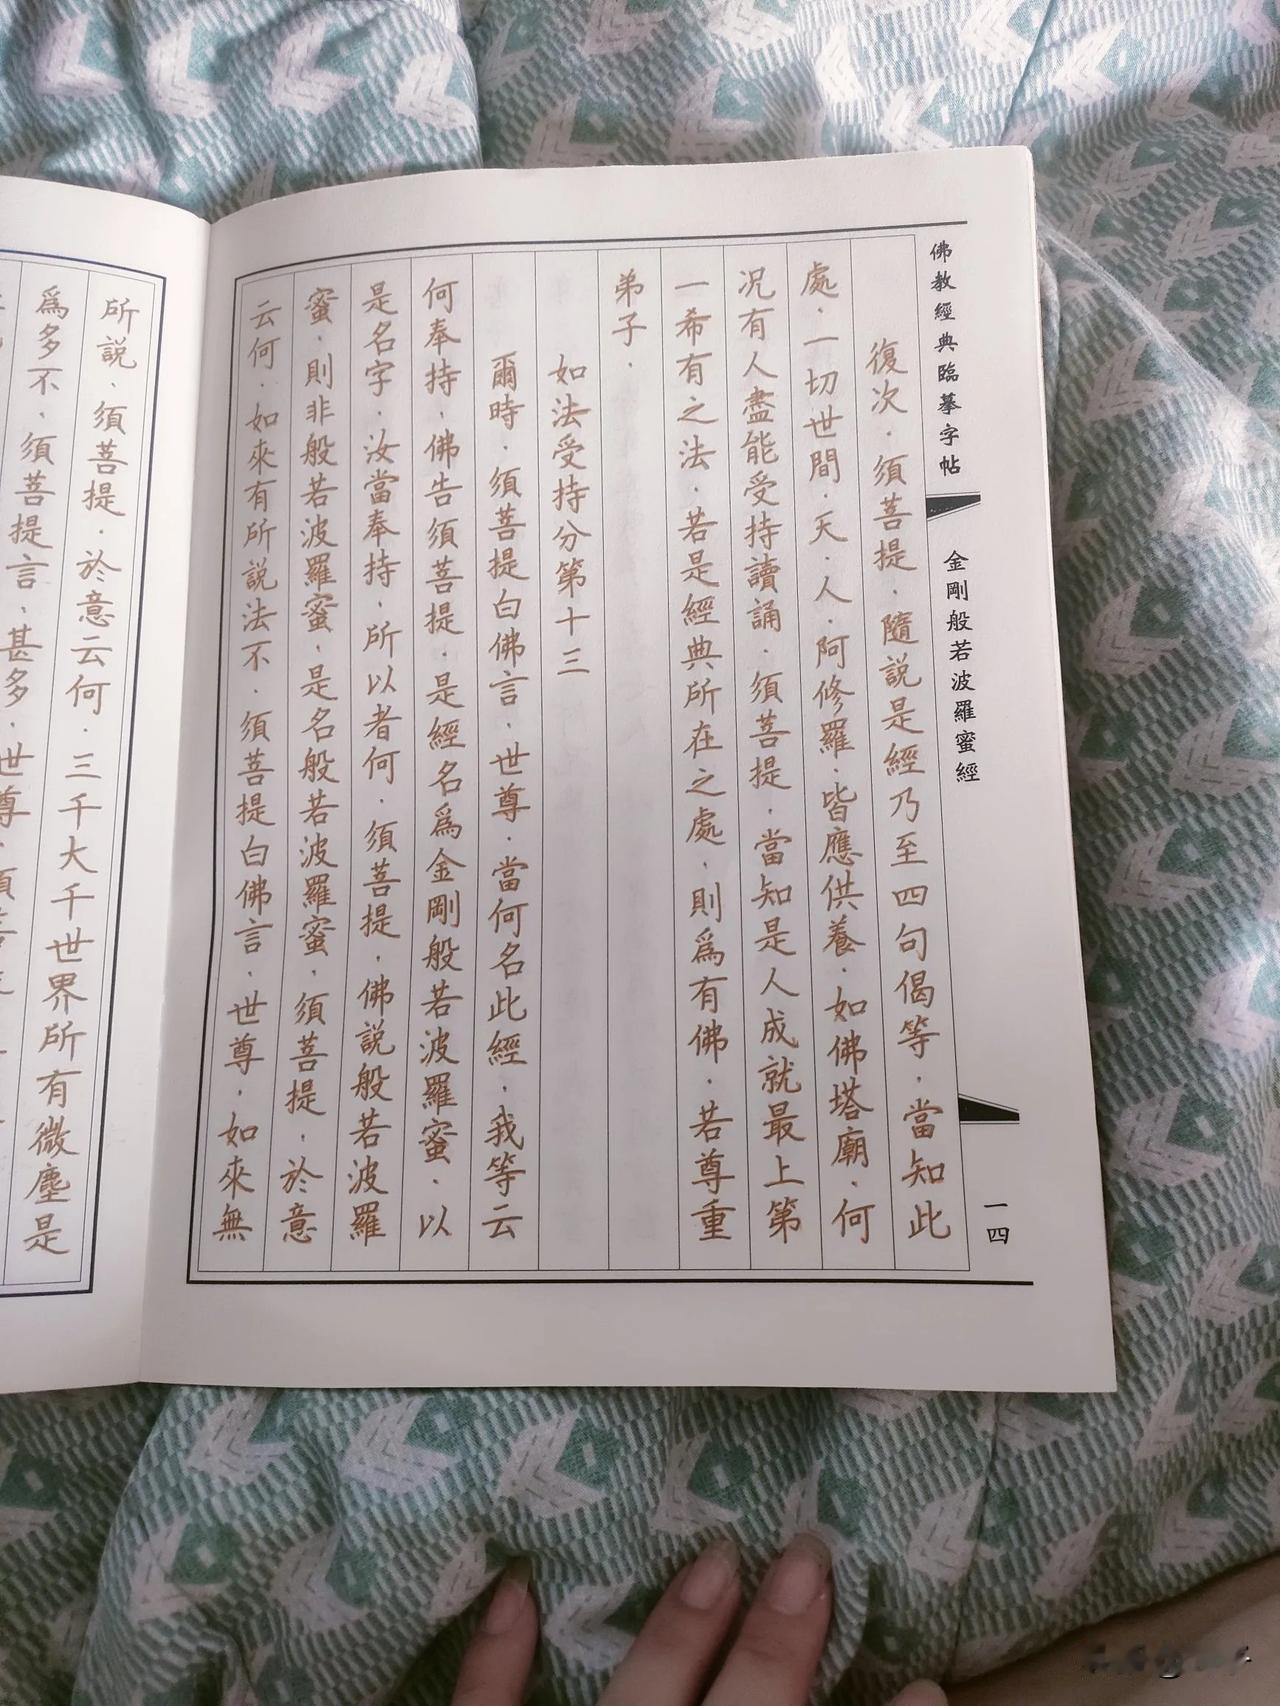 佛教經典臨摹字帖
金剛般若波羅蜜經
一四
復次．須菩提．隨說是經乃至四句偈等．當知此
處．一切世間．天．人．阿修羅．皆應供養．如佛塔廟．何
況有人盡能受持讀誦．須菩提．當知是人成就最上第
一希有之法．若是經典所在之處．則為有佛．若尊重
弟子．
如法受持分第十三
爾時．須菩提白佛言．世尊．當何名此經．我等云
何奉持．佛告須菩提．是經名為金剛般若波羅蜜．以
是名字．汝當奉持．所以者何．須菩提．佛說般若波羅
蜜．則非般若波羅蜜．是名般若波羅蜜．須菩提．於意
云何．如來有所說法不．須菩提白佛言．世尊．如來無
所說．須菩提．於意云何．三千大千世界所有微塵是
為多不．須菩提言．甚多．世尊．須菩